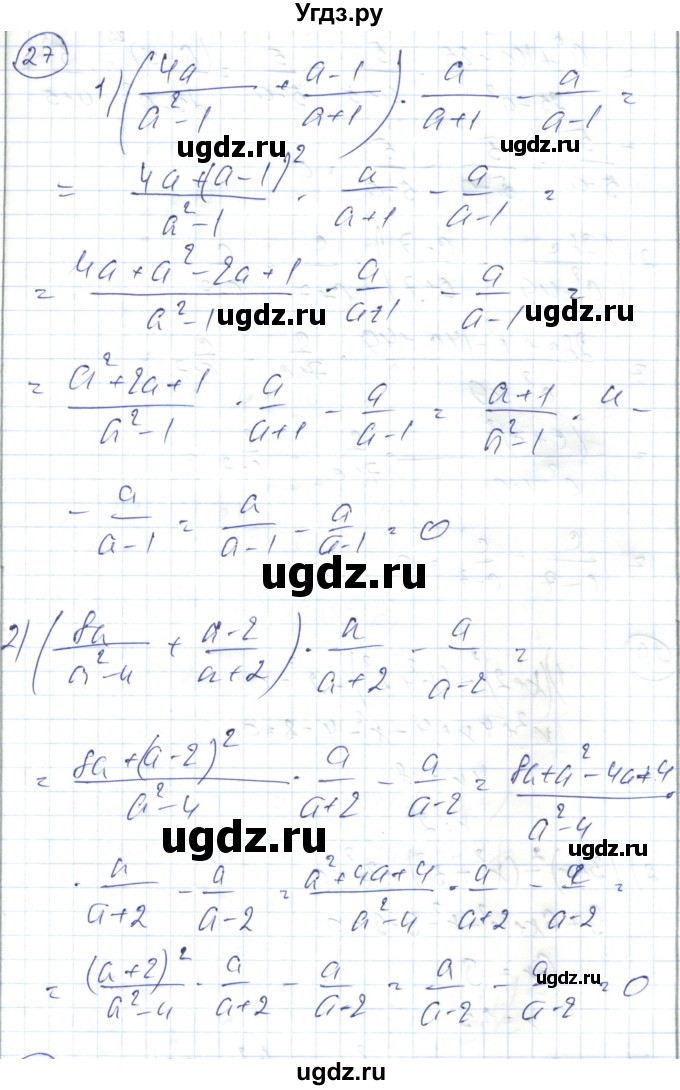 Угдз.ру
27
1) (4a/(a²-1) + (a-1)/(a+1)) · a/(a+1) - a/(a-1) =
ugdz.ru ugdz.ru
= (4a+(a-1)²)/(a²-1) · a/(a+1) - a/(a-1) =
= (4a+a²-2a+1)/(a²-1) · a/(a+1) - a/(a-1) =
ugdz.ru ugdz.ru
= (a²+2a+1)/(a²-1) · a/(a+1) - a/(a-1) = (a+1)/(a²-1) · a -
ugdz.ru
- a/(a-1) = a/(a-1) - a/(a-1) = 0
ugdz.ru
2) (8a/(a²-4) + (a-2)/(a+2)) · a/(a+2) - a/(a-2) =
ugdz.ru
= (8a+(a-2)²)/(a²-4) · a/(a+2) - a/(a-2) = (8a+a²-4a+4)/(a²-4) ·
ugdz.ru ugdz.ru
· a/(a+2) - a/(a-2) = (a²+4a+4)/(a²-4) · a/(a+2) - a/(a-2) =
ugdz.ru
= (a+2)²/(a²-4) · a/(a+2) - a/(a-2) = a/(a-2) - a/(a-2) = 0
ugdz.ru